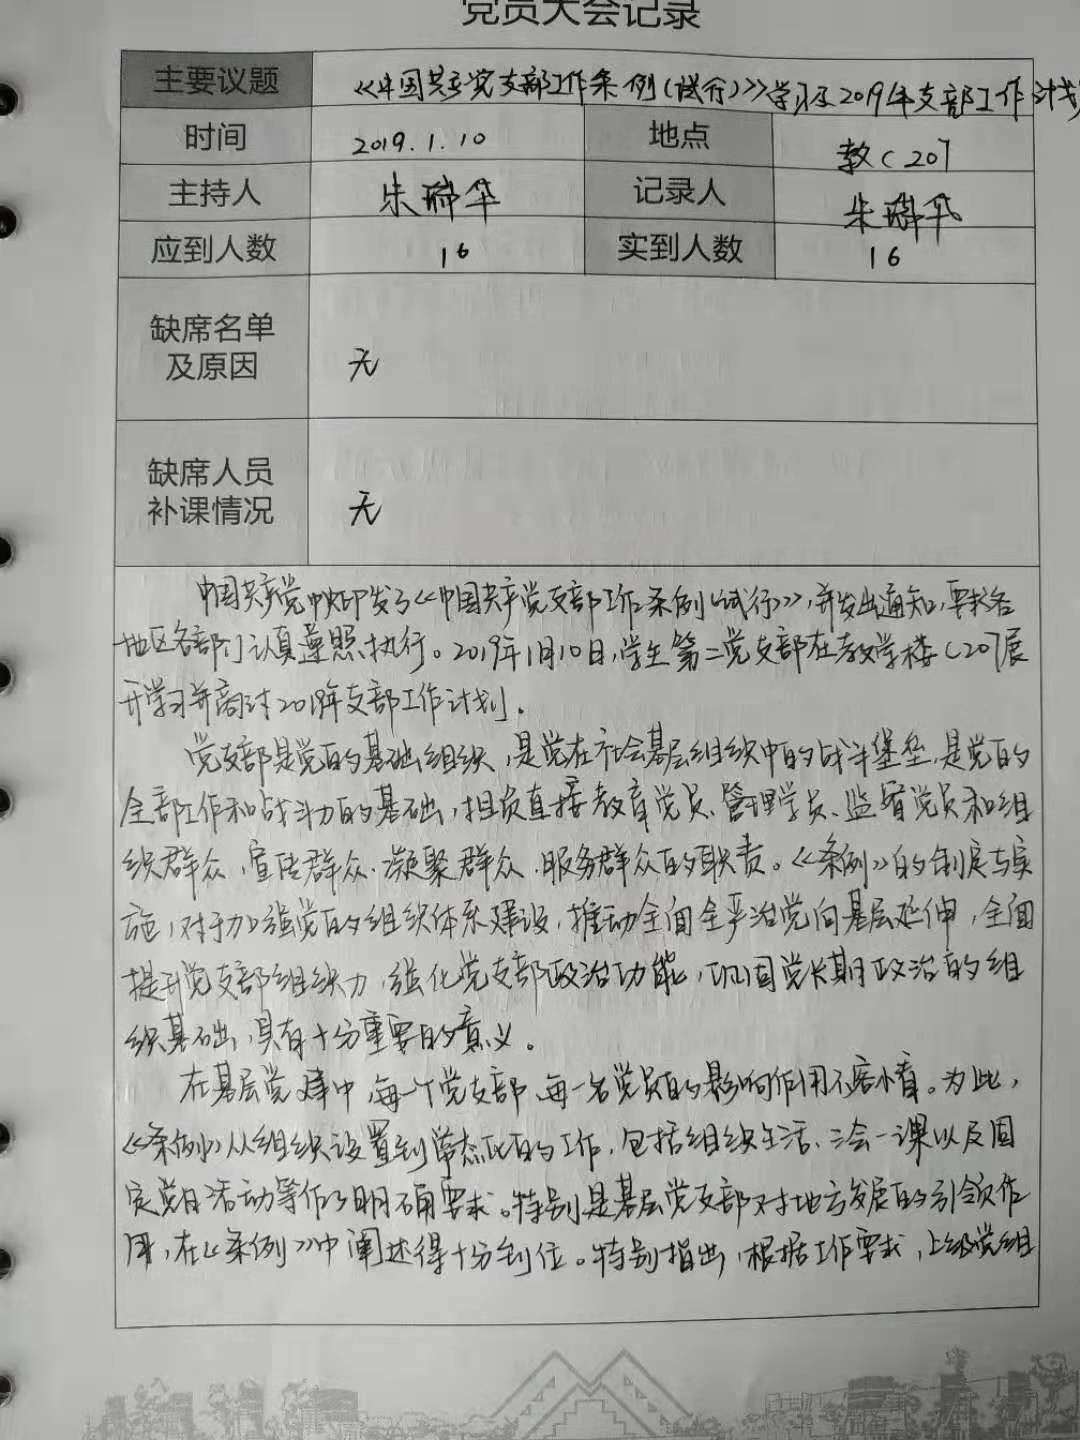 党员大会记录
主要议题 《中国共产党支部工作条例(试行)》学习及2019年支部工作计划
时间 2019.1.10 地点 教C207
主持人 朱瑞华 记录人 朱瑞华
应到人数 16 实到人数 16
缺席名单
及原因 无
缺席人员
补课情况 无
中国共产党中央印发了《中国共产党支部工作条例(试行)》,并发出通知,要求各
地区各部门认真遵照执行。2019年1月10日,学生第二党支部在教学楼C207展
开学习并商讨2019年支部工作计划.
党支部是党的基础组织,是党在社会基层组织中的战斗堡垒,是党的
全部工作和战斗力的基础,担负直接教育党员、管理学员、监督党员和组
织群众、宣传群众、凝聚群众、服务群众的职责。《条例》的制定与实
施,对于加强党的组织体系建设,推动全面全严治党向基层延伸,全面
提升党支部组织力,强化党支部政治功能,巩固党长期政治的组
织基础,具有十分重要的意义。
在基层党建中,每一个党支部、每一名党员的影响作用不容小看。为此,
《条例》从组织设置到常态化的工作,包括组织生活、三会一课以及固
定党日活动等作了明确要求。特别是基层党支部对地方发展的引领作
用,在《条例》中阐述得十分到位。特别指出,根据工作要求,上级党组